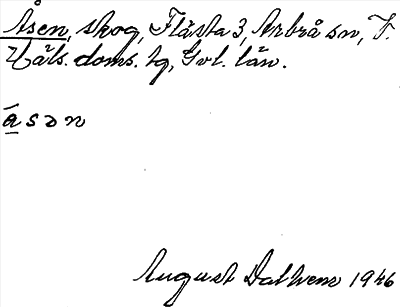 Åsen, skog, Flästa 3, Arbrå sn, F.
Häls. doms. tg, Gvl. län.
åsən
August Dalhem 1946